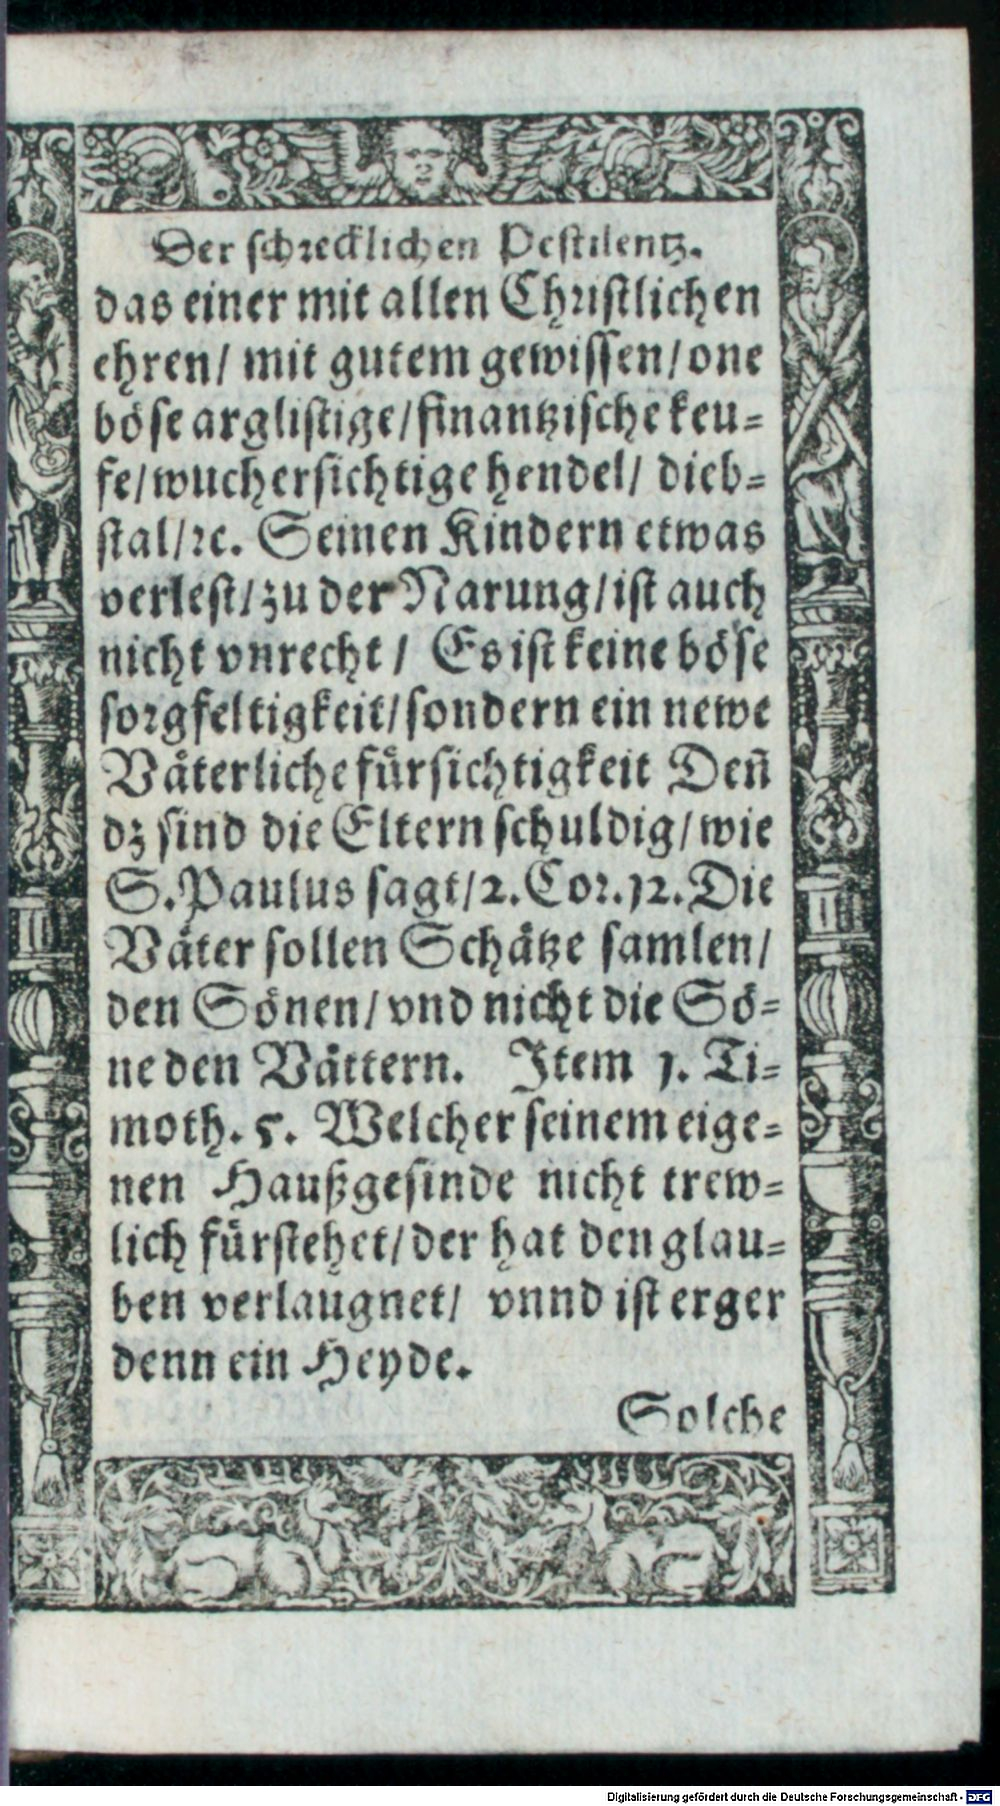 Der schrecklichen Pestilentz.
das einer mit allen Christlichen
ehren/ mit gutem gewissen/ one
böse arglistige/ finantzische keu-
fe/ wuchersichtige hendel/ dieb-
stal/ ꝛc. Seinen Kindern etwas
verlest/ zu der Narung/ ist auch
nicht vnrecht/ Es ist keine böse
sorgfeltigkeit/ sondern ein newe
Väterliche fürsichtigkeit Deñ
dz sind die Eltern schuldig/ wie
S. Paulus sagt/ 2. Cor. 12. Die
Väter sollen Schätze samlen/
den Sönen/ vnd nicht die Sö-
ne den Vättern. Item 1. Ti-
moth. 5. Welcher seinem eige-
nen Haußgesinde nicht trew-
lich fürstehet/ der hat den glau-
ben verlaugnet/ vnnd ist erger
denn ein Heyde.
Solche
Digitalisierung gefördert durch die Deutsche Forschungsgemeinschaft - DFG